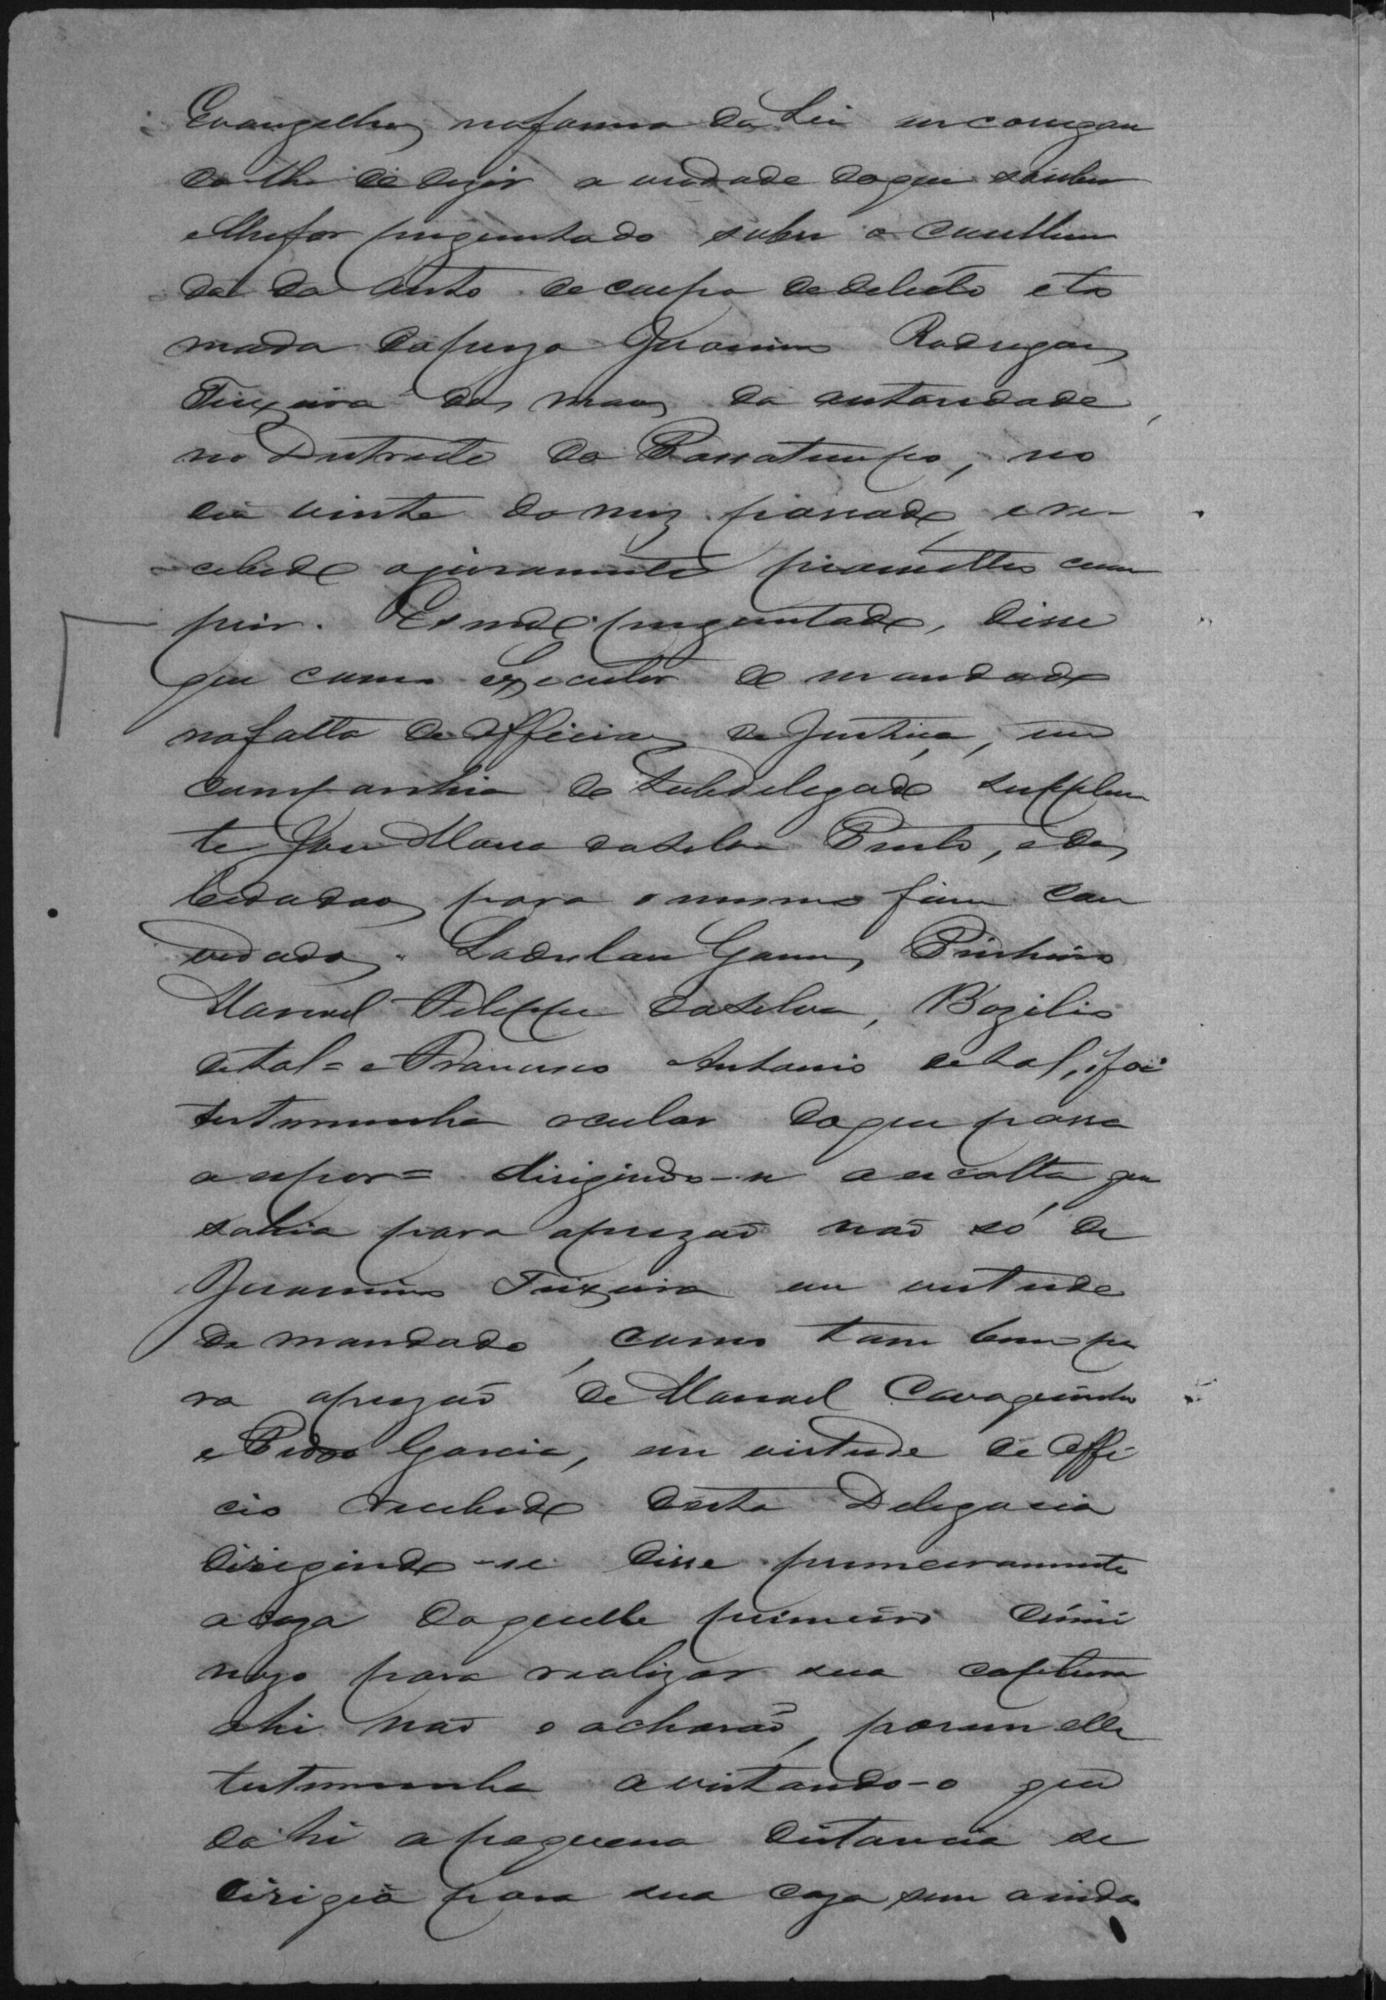 Evangelhos na forma da Lei encarregan
do-lhe de dizer a verdade do que souber
e lhe for preguntado sobre o conthiu
do do auto de corpo de delicto e to
mada do prezo Jeronimo Rodrigues
Teixeira das maos da autoridade
no Destricto do Passatempo, no
dia vinte do mez passado, e re-
cebido o juramento prometteo cum
prir. E sendo preguntado, disse
que como executor de mandado
na falta de officiaes de Justiça, em
companhia do subdelegado supplen
te José Maria da Silva Pinto, e dos
cidadaos para o mesmo fim con
vidados Ladislau Gomes Pinheiro
Manoel Felippe da Silva, Bazilio
de tal = e Francisco Antonio de tal, foi
testemunha ocular do que passa
a expor = dirigindo-se a escolta que
sahia para a prizaõ naõ só de
Jeronimo Teixeira em virtude
de mandado, como tam bem pa
ra a prizaõ de Manoel Cavaquinho
e Pedro Garcia, em virtude de offi
cio recebido desta Delegacia
dirigindo-se disse primeiramente
a caza daquelle primeiro crimi
nozo para realizar sua captura
ahi naõ o acharaõ, porem elle
testemunha avistando-o que
dahi a pequena distancia se
dirigia para sua caza sem ainda